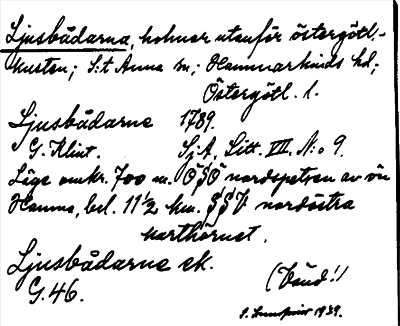 Ljusbådarna, holmar utanför östergötl.-
kusten; S:t Anna sn; Hammarkinds hd;
Östergötl. l.
Ljusbådarne 1789.
G. Klint. Sj.A. Litt. VII. N:o 9.
Läge omkr. 700 m. OSO nordspetsen av ön
Hamna, bel. 11 1/2 km. SSV nordöstra
karthörnet.
Ljusbådarne ek.
G. 46.
(båud!)
1939.